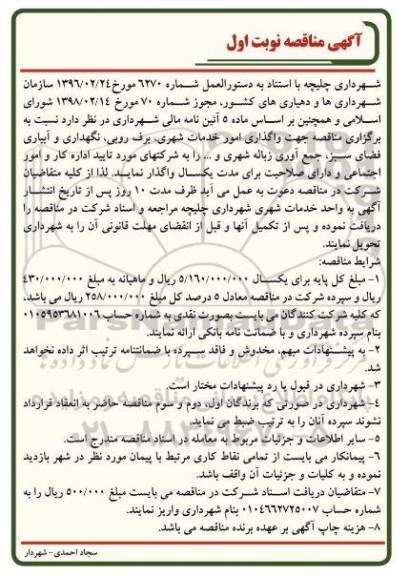 آگهی مناقصه نوبت اول
شهرداری چلیچه با استناد به دستورالعمل شماره ۶۲۷۰ مورخ ۱۳۹۶/۰۲/۲۴ سازمان
شهرداری ها و دهیاری های کشور، مجوز شماره ۷۰ مورخ ۱۳۹۸/۰۲/۱۴ شورای
اسلامی و همچنین بر اساس ماده ۵ آئین نامه مالی شهرداری در نظر دارد نسبت به
برگزاری مناقصه جهت واگذاری امور خدمات شهری، برف روبی، نگهداری و آبیاری
فضای سبز، جمع آوری زباله شهری و ... را به شرکتهای مورد تایید اداره کار و امور
اجتماعی و دارای صلاحیت برای مدت یکسال واگذار نماید. لذا از کلیه متقاضیان
شرکت در مناقصه دعوت به عمل می آید ظرف مدت ۱۰ روز پس از تاریخ انتشار
آگهی به واحد خدمات شهری شهرداری چلیچه مراجعه و اسناد شرکت در مناقصه را
دریافت نموده و پس از تکمیل آنها و قبل از انقضای مهلت قانونی آن را به شهرداری
تحویل نمایند.
شرایط مناقصه:
۱- مبلغ کل پایه برای یکسال ۵/۱۶۰/۰۰۰/۰۰۰ ریال و ماهیانه به مبلغ ۴۳۰/۰۰۰/۰۰۰
ریال و سپرده شرکت در مناقصه معادل ۵ درصد کل مبلغ ۲۵۸/۰۰۰/۰۰۰ ریال می باشد.
که کلیه شرکت کنندگان می بایست بصورت نقدی به شماره حساب ۰۱۰۵۹۵۳۶۸۱۰۰۶
بنام سپرده شهرداری و با ضمانت نامه بانکی ارائه نمایند.
۲- به پیشنهادات مبهم، مخدوش و فاقد سپرده یا ضمانتنامه ترتیب اثر داده نخواهد
شد.
۳- شهرداری در قبول یا رد پیشنهادات مختار است.
۴- شهرداری در صورتی که برندگان اول، دوم و سوم مناقصه حاضر به انعقاد قرارداد
نشوند سپرده آنان را به ترتیب ضبط می نماید.
۵- سایر اطلاعات و جزئیات مربوط به معامله در اسناد مناقصه مندرج است.
۶- پیمانکار می بایست از تمامی نقاط کاری مرتبط با پیمان مورد نظر در شهر بازدید
نموده و به کلیات و جزئیات آن واقف باشد.
۷- متقاضیان دریافت اسناد شرکت در مناقصه می بایست مبلغ ۵۰۰/۰۰۰ ریال را به
شماره حساب ۰۱۰۴۶۶۲۷۲۵۰۰۷ بنام شهرداری واریز نمایند.
۸- هزینه چاپ آگهی بر عهده برنده مناقصه می باشد.
سجاد احمدی- شهردار